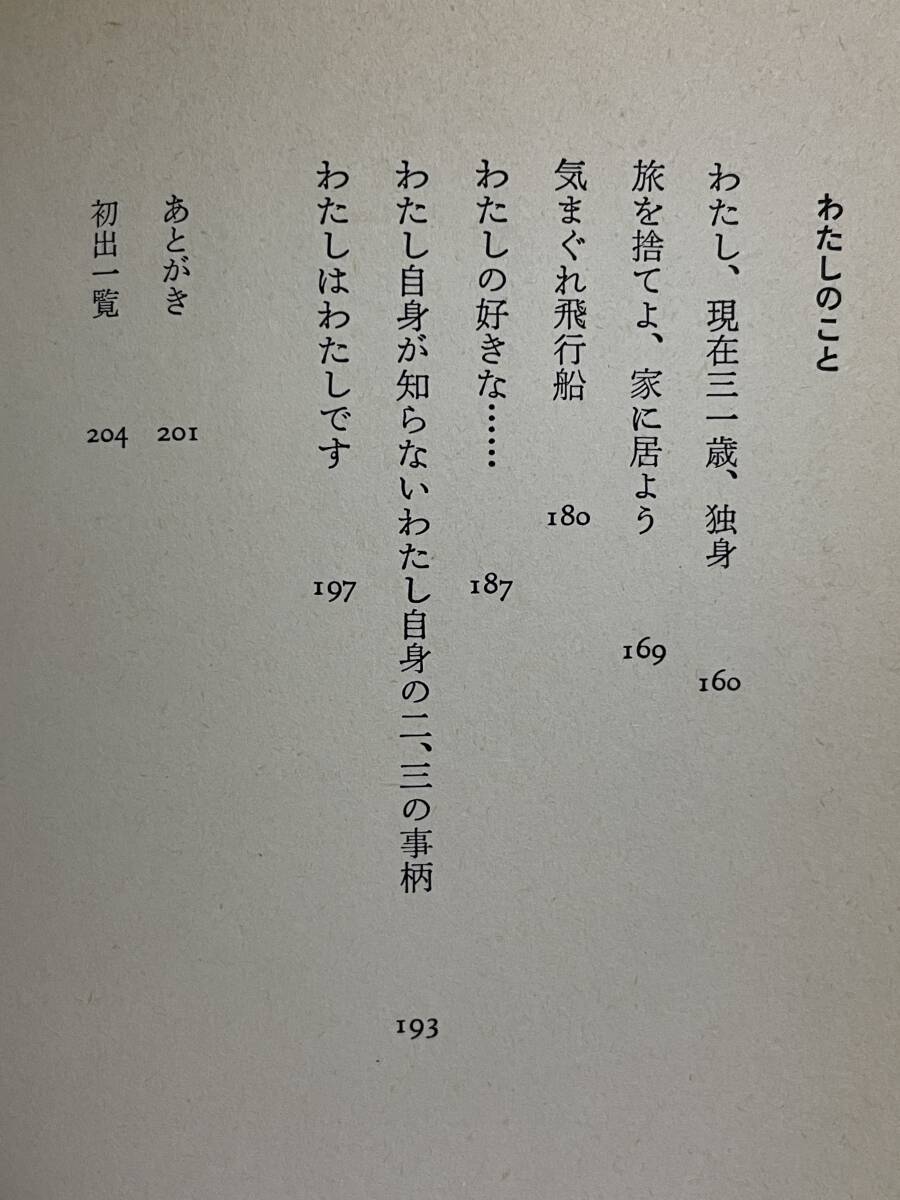 わたしのこと
わたし、現在三一歳、独身 160
旅を捨てよ、家に居よう 169
気まぐれ飛行船 180
わたしの好きな…… 187
わたし自身が知らないわたし自身の二、三の事柄 193
わたしはわたしです 197
あとがき 201
初出一覧 204